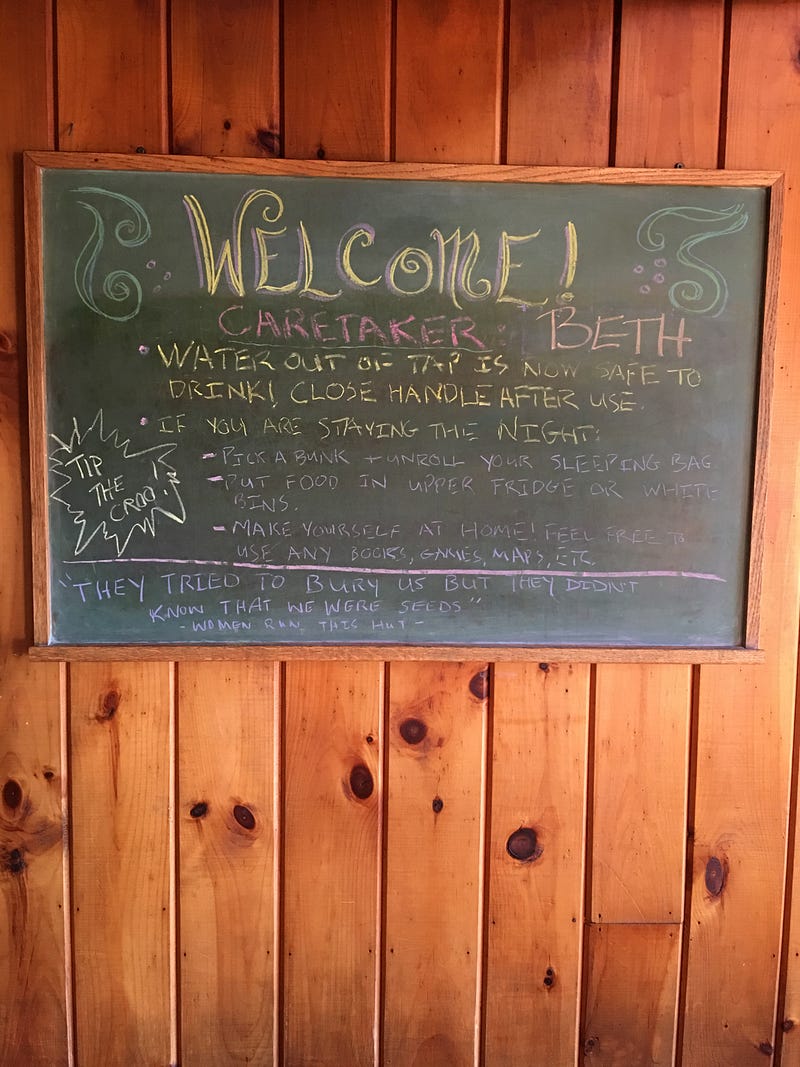 WELCOME!
CARETAKER: BETH
• WATER OUT OF TAP IS NOW SAFE TO
DRINK! CLOSE HANDLE AFTER USE.
• IF YOU ARE STAYING THE NIGHT:
- PICK A BUNK + UNROLL YOUR SLEEPING BAG
- PUT FOOD IN UPPER FRIDGE OR WHITE
BINS.
- MAKE YOURSELF AT HOME! FEEL FREE TO
USE ANY BOOKS, GAMES, MAPS, ETC.
TIP
THE
CROO!
"THEY TRIED TO BURY US BUT THEY DIDN'T
KNOW THAT WE WERE SEEDS"
- WOMEN RUN THIS HUT -